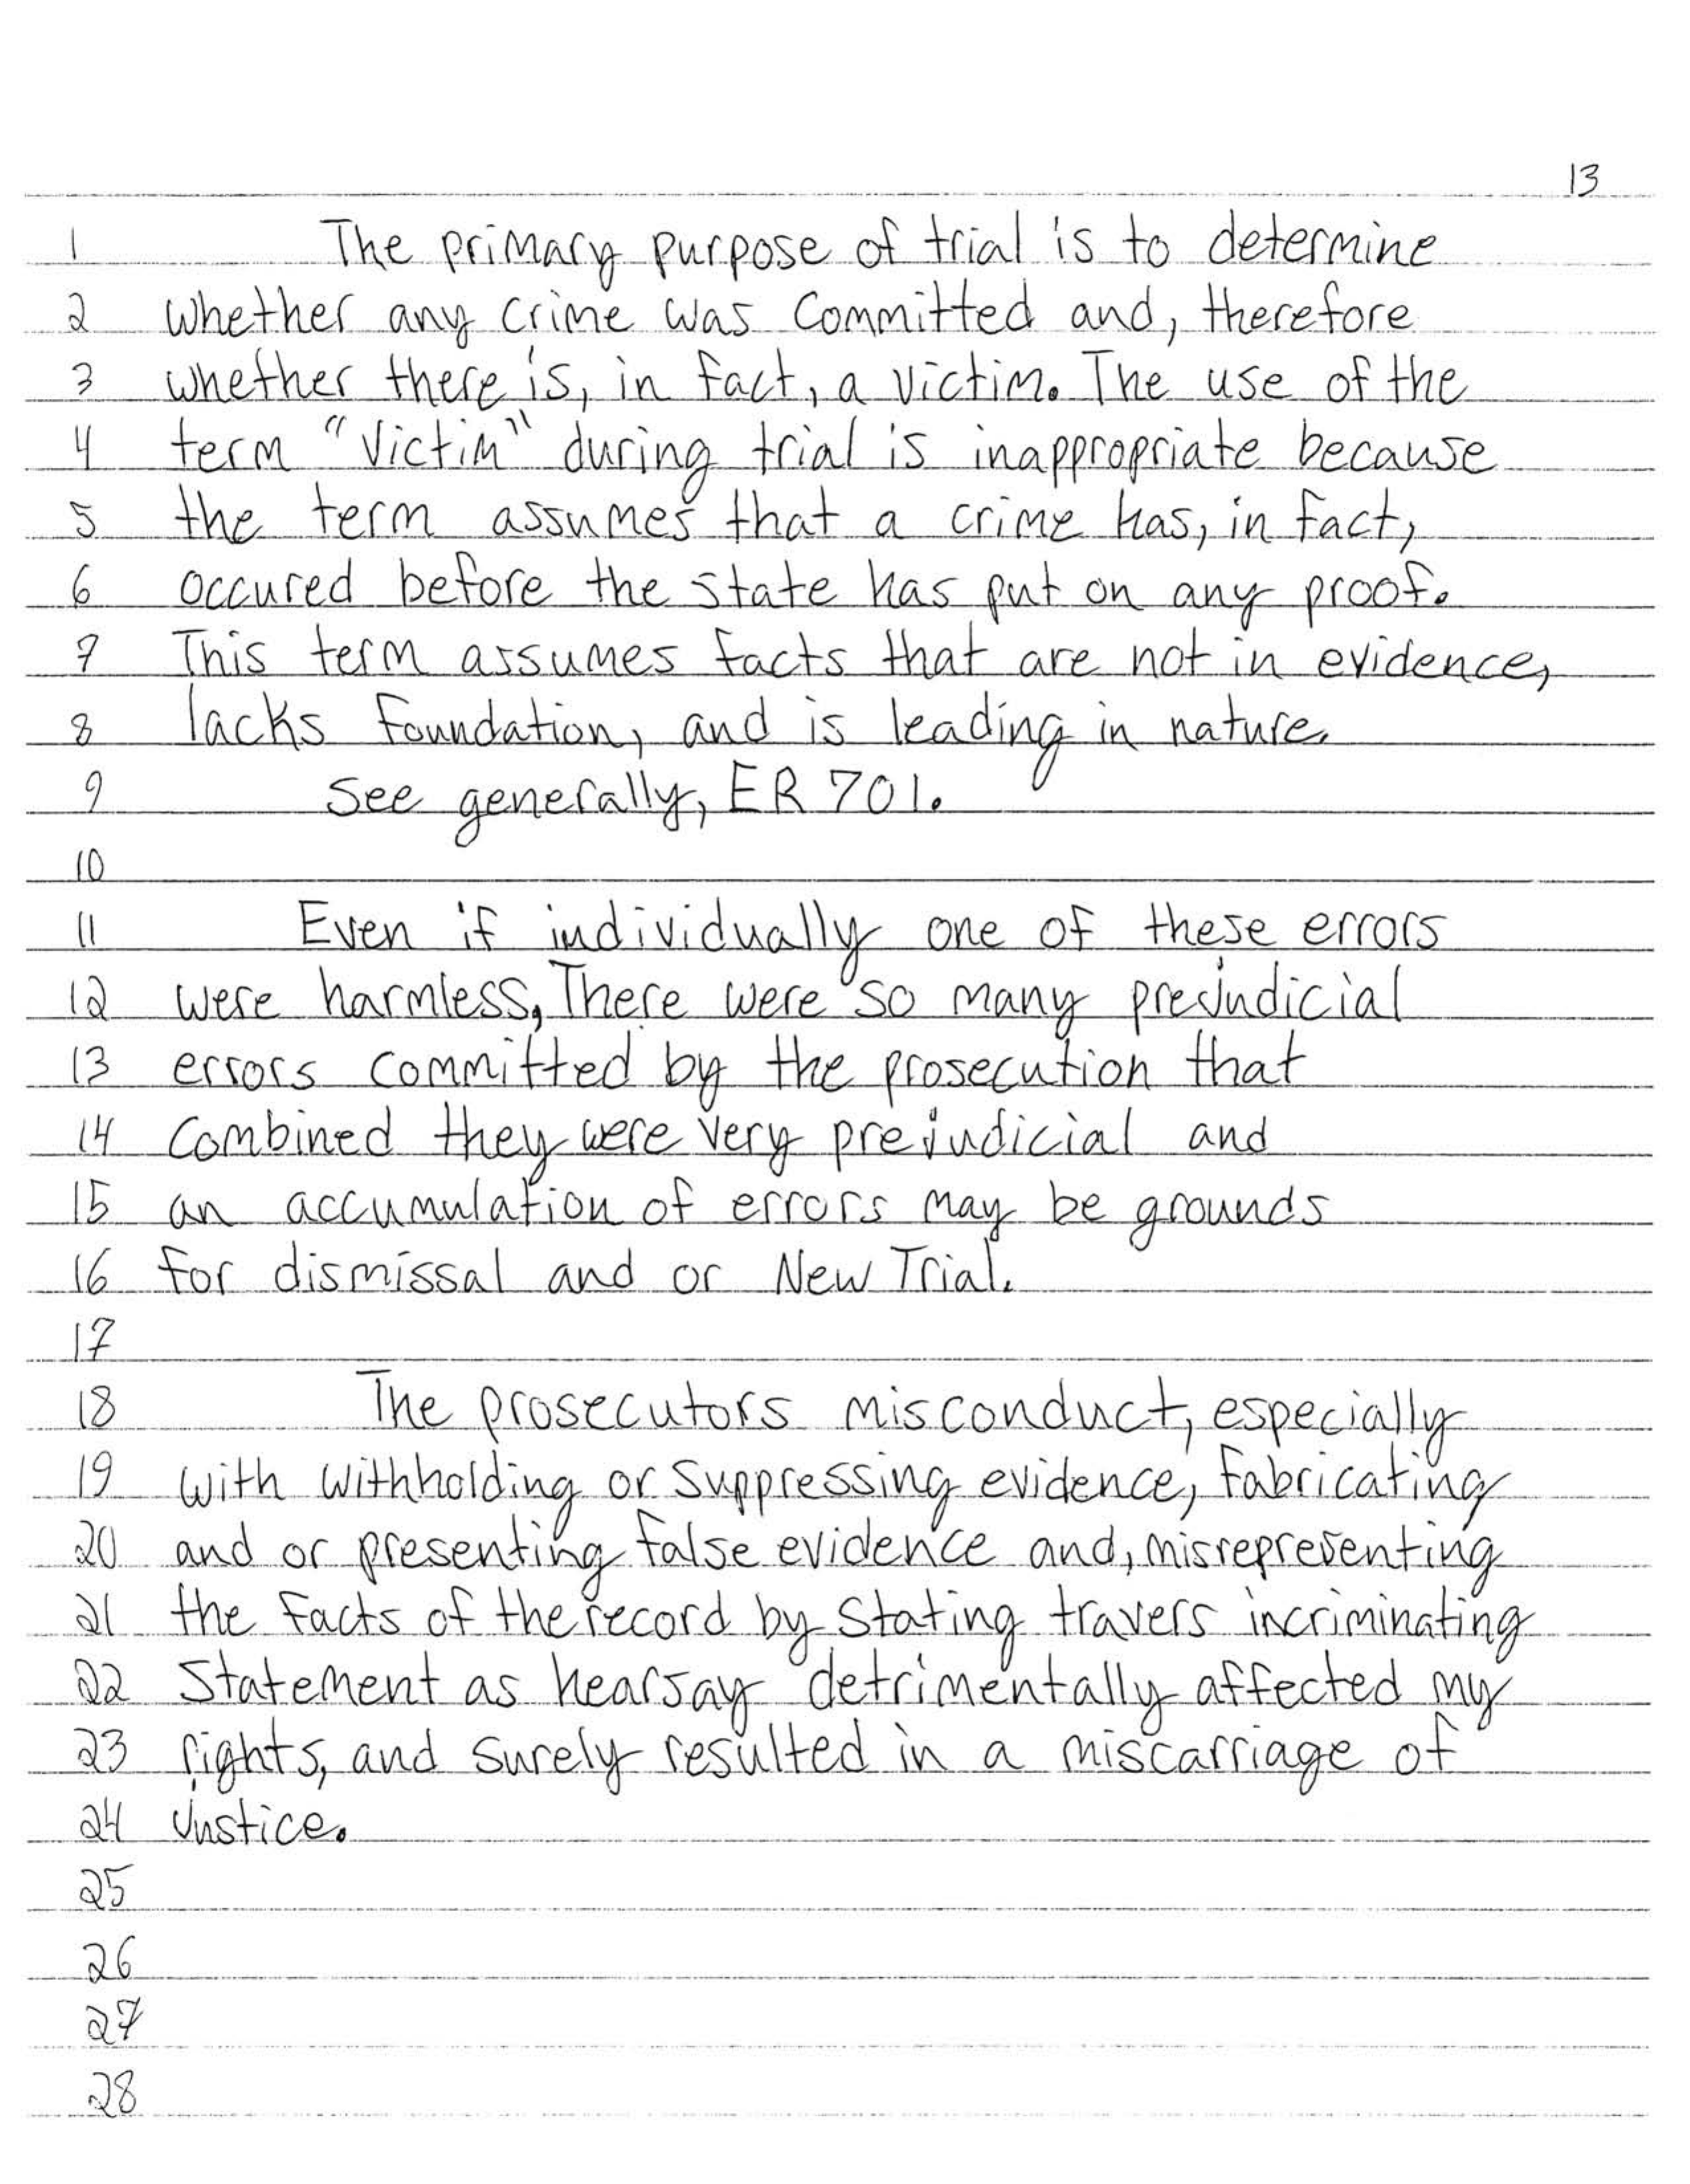 13
1 The primary purpose of trial is to determine
2 whether any crime was committed and, therefore
3 whether there is, in fact, a victim. The use of the
4 term "Victim" during trial is inappropriate because
5 the term assumes that a crime has, in fact,
6 occured before the state has put on any proof.
7 This term assumes facts that are not in evidence,
8 lacks foundation, and is leading in nature.
9 See generally, ER 701.
10
11 Even if individually one of these errors
12 were harmless, There were so many prejudicial
13 errors committed by the prosecution that
14 combined they were very prejudicial and
15 an accumulation of errors may be grounds
16 for dismissal and or New Trial.
17
18 The prosecutors misconduct, especially
19 with withholding or suppressing evidence, fabricating
20 and or presenting false evidence and, misrepresenting
21 the facts of the record by stating travers incriminating
22 Statement as hearsay detrimentally affected my
23 rights, and surely resulted in a miscarriage of
24 Justice.
25
26
27
28